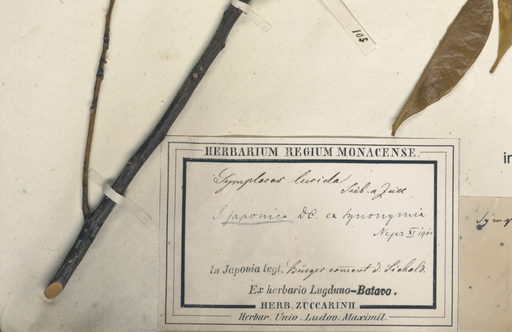 105
HERBARIUM REGIUM MONACENSE.
Symplocos lucida
Sieb. & Zucc
S. japonica DC. ex synonymia
XI
In Japonia legt. Bürger comm. d. Siebold.
Ex herbario Lugduno-Batavo.
HERB. ZUCCARINII
Herbar. Univ. Ludov. Maximil.
in
Symp